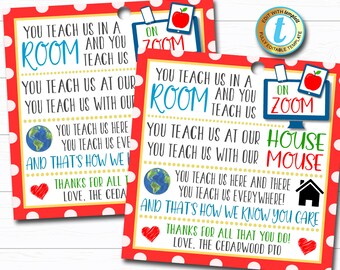 EDIT WITH templett
FULLY EDITABLE TEMPLATE
YOU TEACH US IN A
ROOM AND YOU
TEACH US
ON
ZOOM
YOU TEACH US AT OUR
YOU TEACH US WITH OUR
YOU TEACH US HERE
YOU TEACH US EVE
AND THAT'S HOW WE
THANKS FOR ALL
LOVE, THE CEDAR
YOU TEACH US IN A
ROOM AND YOU
TEACH US
ON
ZOOM
YOU TEACH US AT OUR HOUSE
YOU TEACH US WITH OUR MOUSE
YOU TEACH US HERE AND THERE
YOU TEACH US EVERYWHERE!
AND THAT'S HOW WE KNOW YOU CARE
THANKS FOR ALL THAT YOU DO!
LOVE, THE CEDARWOOD PTO